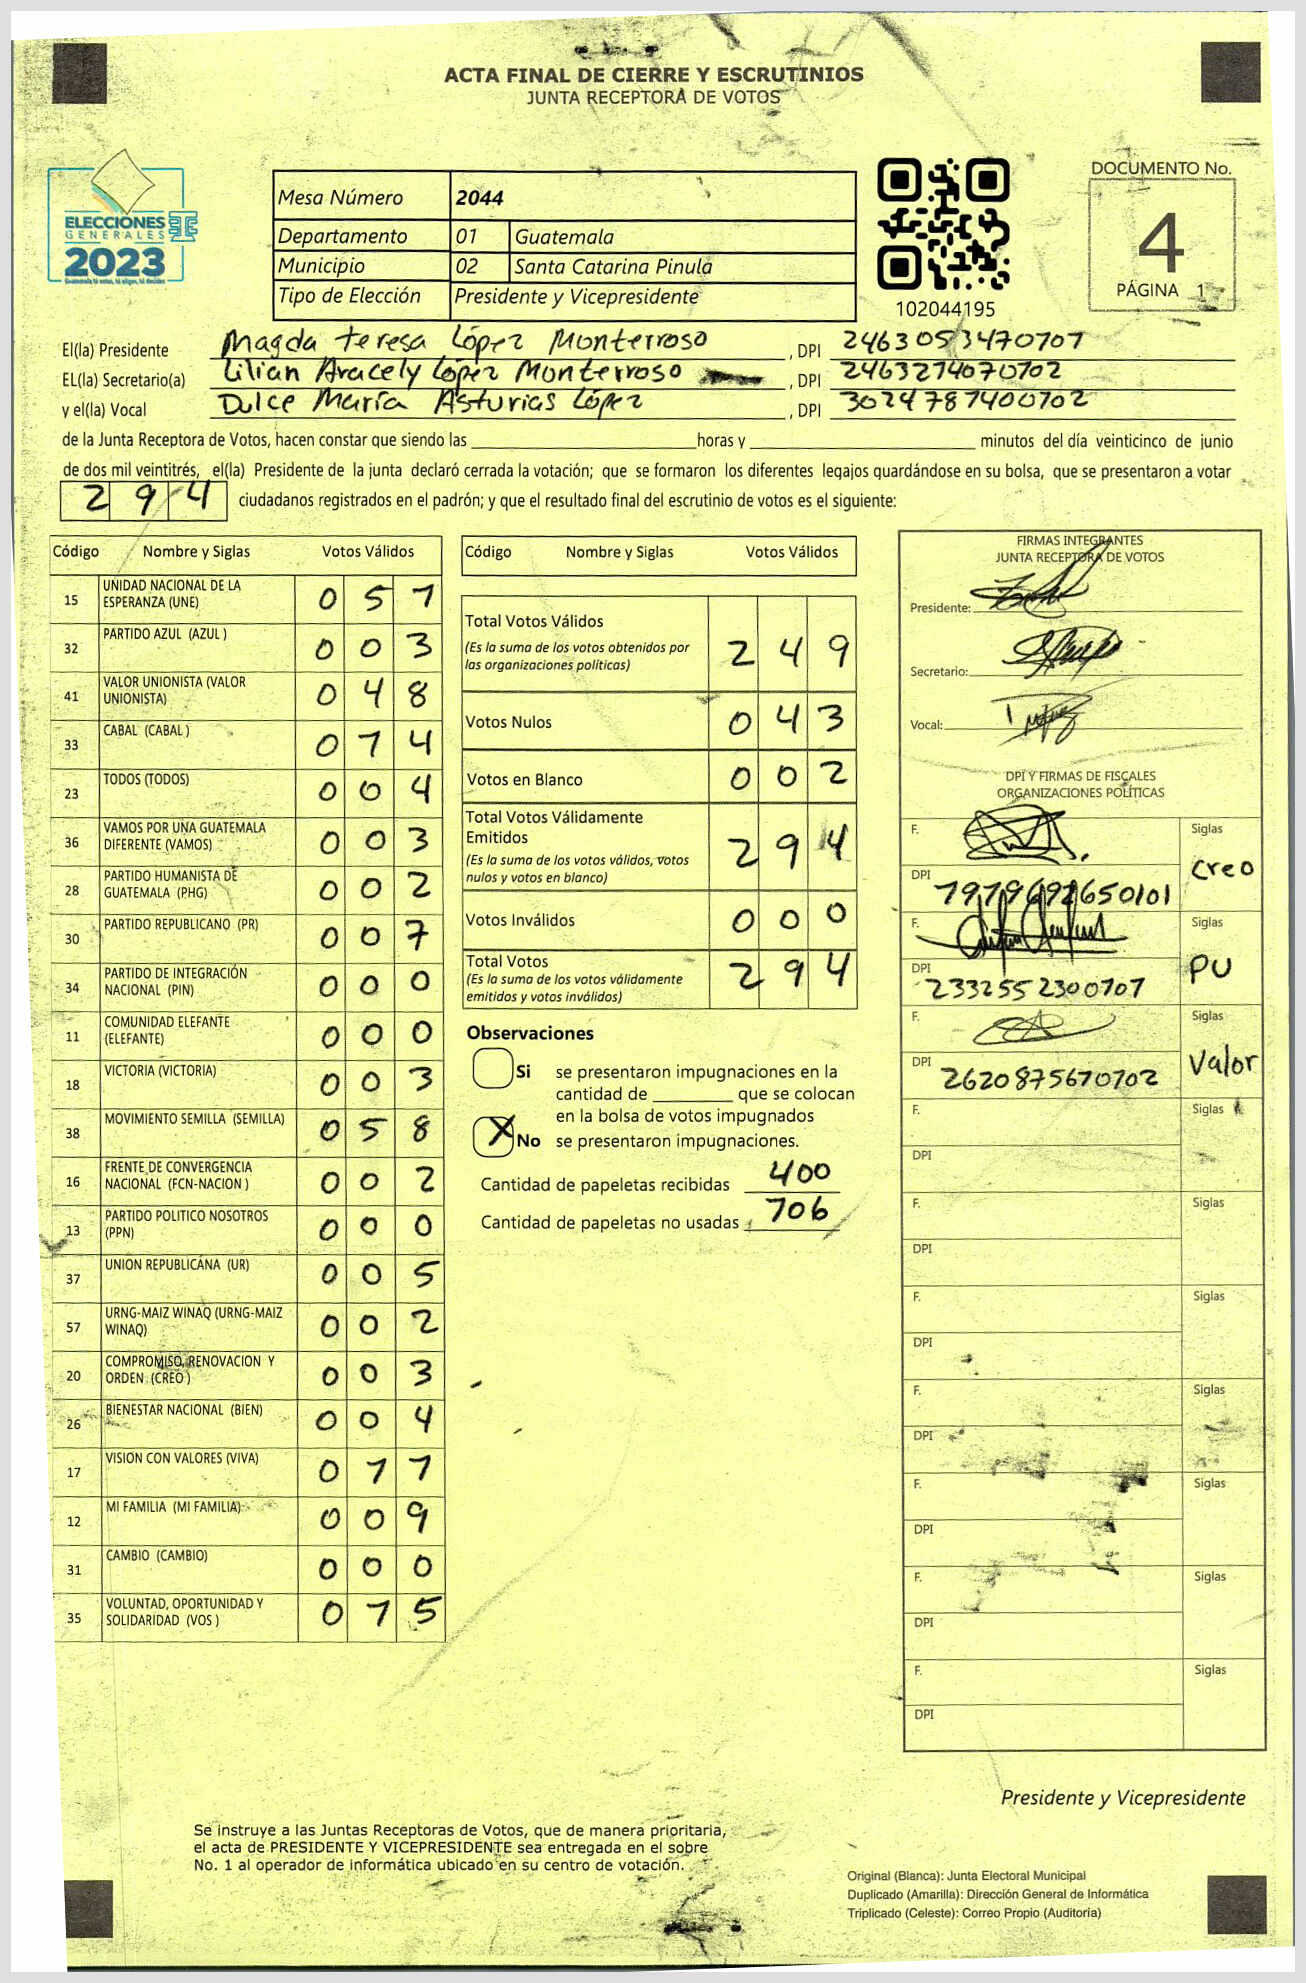 ACTA FINAL DE CIERRE Y ESCRUTINIOS
JUNTA RECEPTORA DE VOTOS
ELECCIONES
GENERALES
2023
Mesa Número 2044
Departamento 01 Guatemala
Municipio 02 Santa Catarina Pinula
Tipo de Elección Presidente y Vicepresidente
102044195
DOCUMENTO No.
4
PÁGINA 1
El(la) Presidente Magda teresa López Monterroso , DPI 2463053470101
EL(la) Secretario(a) Lilian Aracely López Monterroso , DPI 2463214070102
y el(la) Vocal Dulce María Asturias López , DPI 3024187400102
de la Junta Receptora de Votos, hacen constar que siendo las horas y minutos del día veinticinco de junio
de dos mil veintitrés, el(la) Presidente de la junta declaró cerrada la votación; que se formaron los diferentes legajos quardándose en su bolsa, que se presentaron a votar
294 ciudadanos registrados en el padrón; y que el resultado final del escrutinio de votos es el siguiente:
Código Nombre y Siglas Votos Válidos
15 UNIDAD NACIONAL DE LA
ESPERANZA (UNE) 0 5 1
32 PARTIDO AZUL (AZUL ) 0 0 3
41 VALOR UNIONISTA (VALOR
UNIONISTA) 0 4 8
33 CABAL (CABAL ) 0 1 4
23 TODOS (TODOS) 0 0 4
36 VAMOS POR UNA GUATEMALA
DIFERENTE (VAMOS) 0 0 3
28 PARTIDO HUMANISTA DE
GUATEMALA (PHG) 0 0 2
30 PARTIDO REPUBLICANO (PR) 0 0 7
34 PARTIDO DE INTEGRACIÓN
NACIONAL (PIN) 0 0 0
11 COMUNIDAD ELEFANTE
(ELEFANTE) 0 0 0
18 VICTORIA (VICTORIA) 0 0 3
38 MOVIMIENTO SEMILLA (SEMILLA) 0 5 8
16 FRENTE DE CONVERGENCIA
NACIONAL (FCN-NACION ) 0 0 2
13 PARTIDO POLITICO NOSOTROS
(PPN) 0 0 0
37 UNION REPUBLICANA (UR) 0 0 5
57 URNG-MAIZ WINAQ (URNG-MAIZ
WINAQ) 0 0 2
20 COMPROMISO, RENOVACION Y
ORDEN (CREO ) 0 0 3
26 BIENESTAR NACIONAL (BIEN) 0 0 4
17 VISION CON VALORES (VIVA) 0 1 1
12 MI FAMILIA (MI FAMILIA) 0 0 9
31 CAMBIO (CAMBIO) 0 0 0
35 VOLUNTAD, OPORTUNIDAD Y
SOLIDARIDAD (VOS ) 0 1 5
Código Nombre y Siglas Votos Válidos
Total Votos Válidos
(Es la suma de los votos obtenidos por
las organizaciones políticas) 2 4 9
Votos Nulos 0 4 3
Votos en Blanco 0 0 2
Total Votos Válidamente
Emitidos
(Es la suma de los votos válidos, votos
nulos y votos en blanco) 2 9 4
Votos Inválidos 0 0 0
Total Votos
(Es la suma de los votos válidamente
emitidos y votos inválidos) 2 9 4
Observaciones
Si se presentaron impugnaciones en la
cantidad de que se colocan
en la bolsa de votos impugnados
X No se presentaron impugnaciones.
Cantidad de papeletas recibidas 400
Cantidad de papeletas no usadas 106
FIRMAS INTEGRANTES
JUNTA RECEPTORA DE VOTOS
Presidente:
Secretario:
Vocal:
DPI Y FIRMAS DE FISCALES
ORGANIZACIONES POLÍTICAS
F. Siglas
Creo
DPI
F. Siglas
PU
DPI 2332552300101
F. Siglas
Valor
DPI 2620875610102
F. Siglas
DPI
F. Siglas
DPI
F. Siglas
DPI
F. Siglas
DPI
F. Siglas
DPI
F. Siglas
DPI
F. Siglas
DPI
Presidente y Vicepresidente
Se instruye a las Juntas Receptoras de Votos, que de manera prioritaria,
el acta de PRESIDENTE Y VICEPRESIDENTE sea entregada en el sobre
No. 1 al operador de informática ubicado en su centro de votación.
Original (Blanca): Junta Electoral Municipal
Duplicado (Amarilla): Dirección General de Informática
Triplicado (Celeste): Correo Propio (Auditoría)